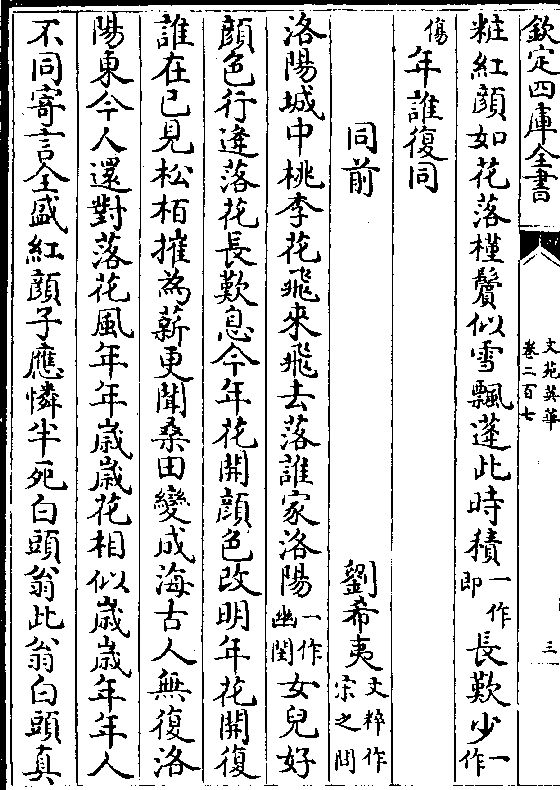 欽定四庫全書
文苑英華
卷二百七
三
粧紅顔如花落槿鬢似雪飄蓬此時積一作即長歎少一作
傷年誰復同
同前
劉希夷文粹作宋之問
洛陽城中桃李花飛來飛去落誰家洛陽一作幽閨女兒好
顔色行逢落花長歎息今年花開顔色改明年花開復
誰在已見松栢摧為薪更聞桑田變成海古人無復洛
陽東今人還對落花風年年歲歲花相似歲歲年年人
不同寄言全盛紅顔子應憐半死白頭翁此翁白頭真